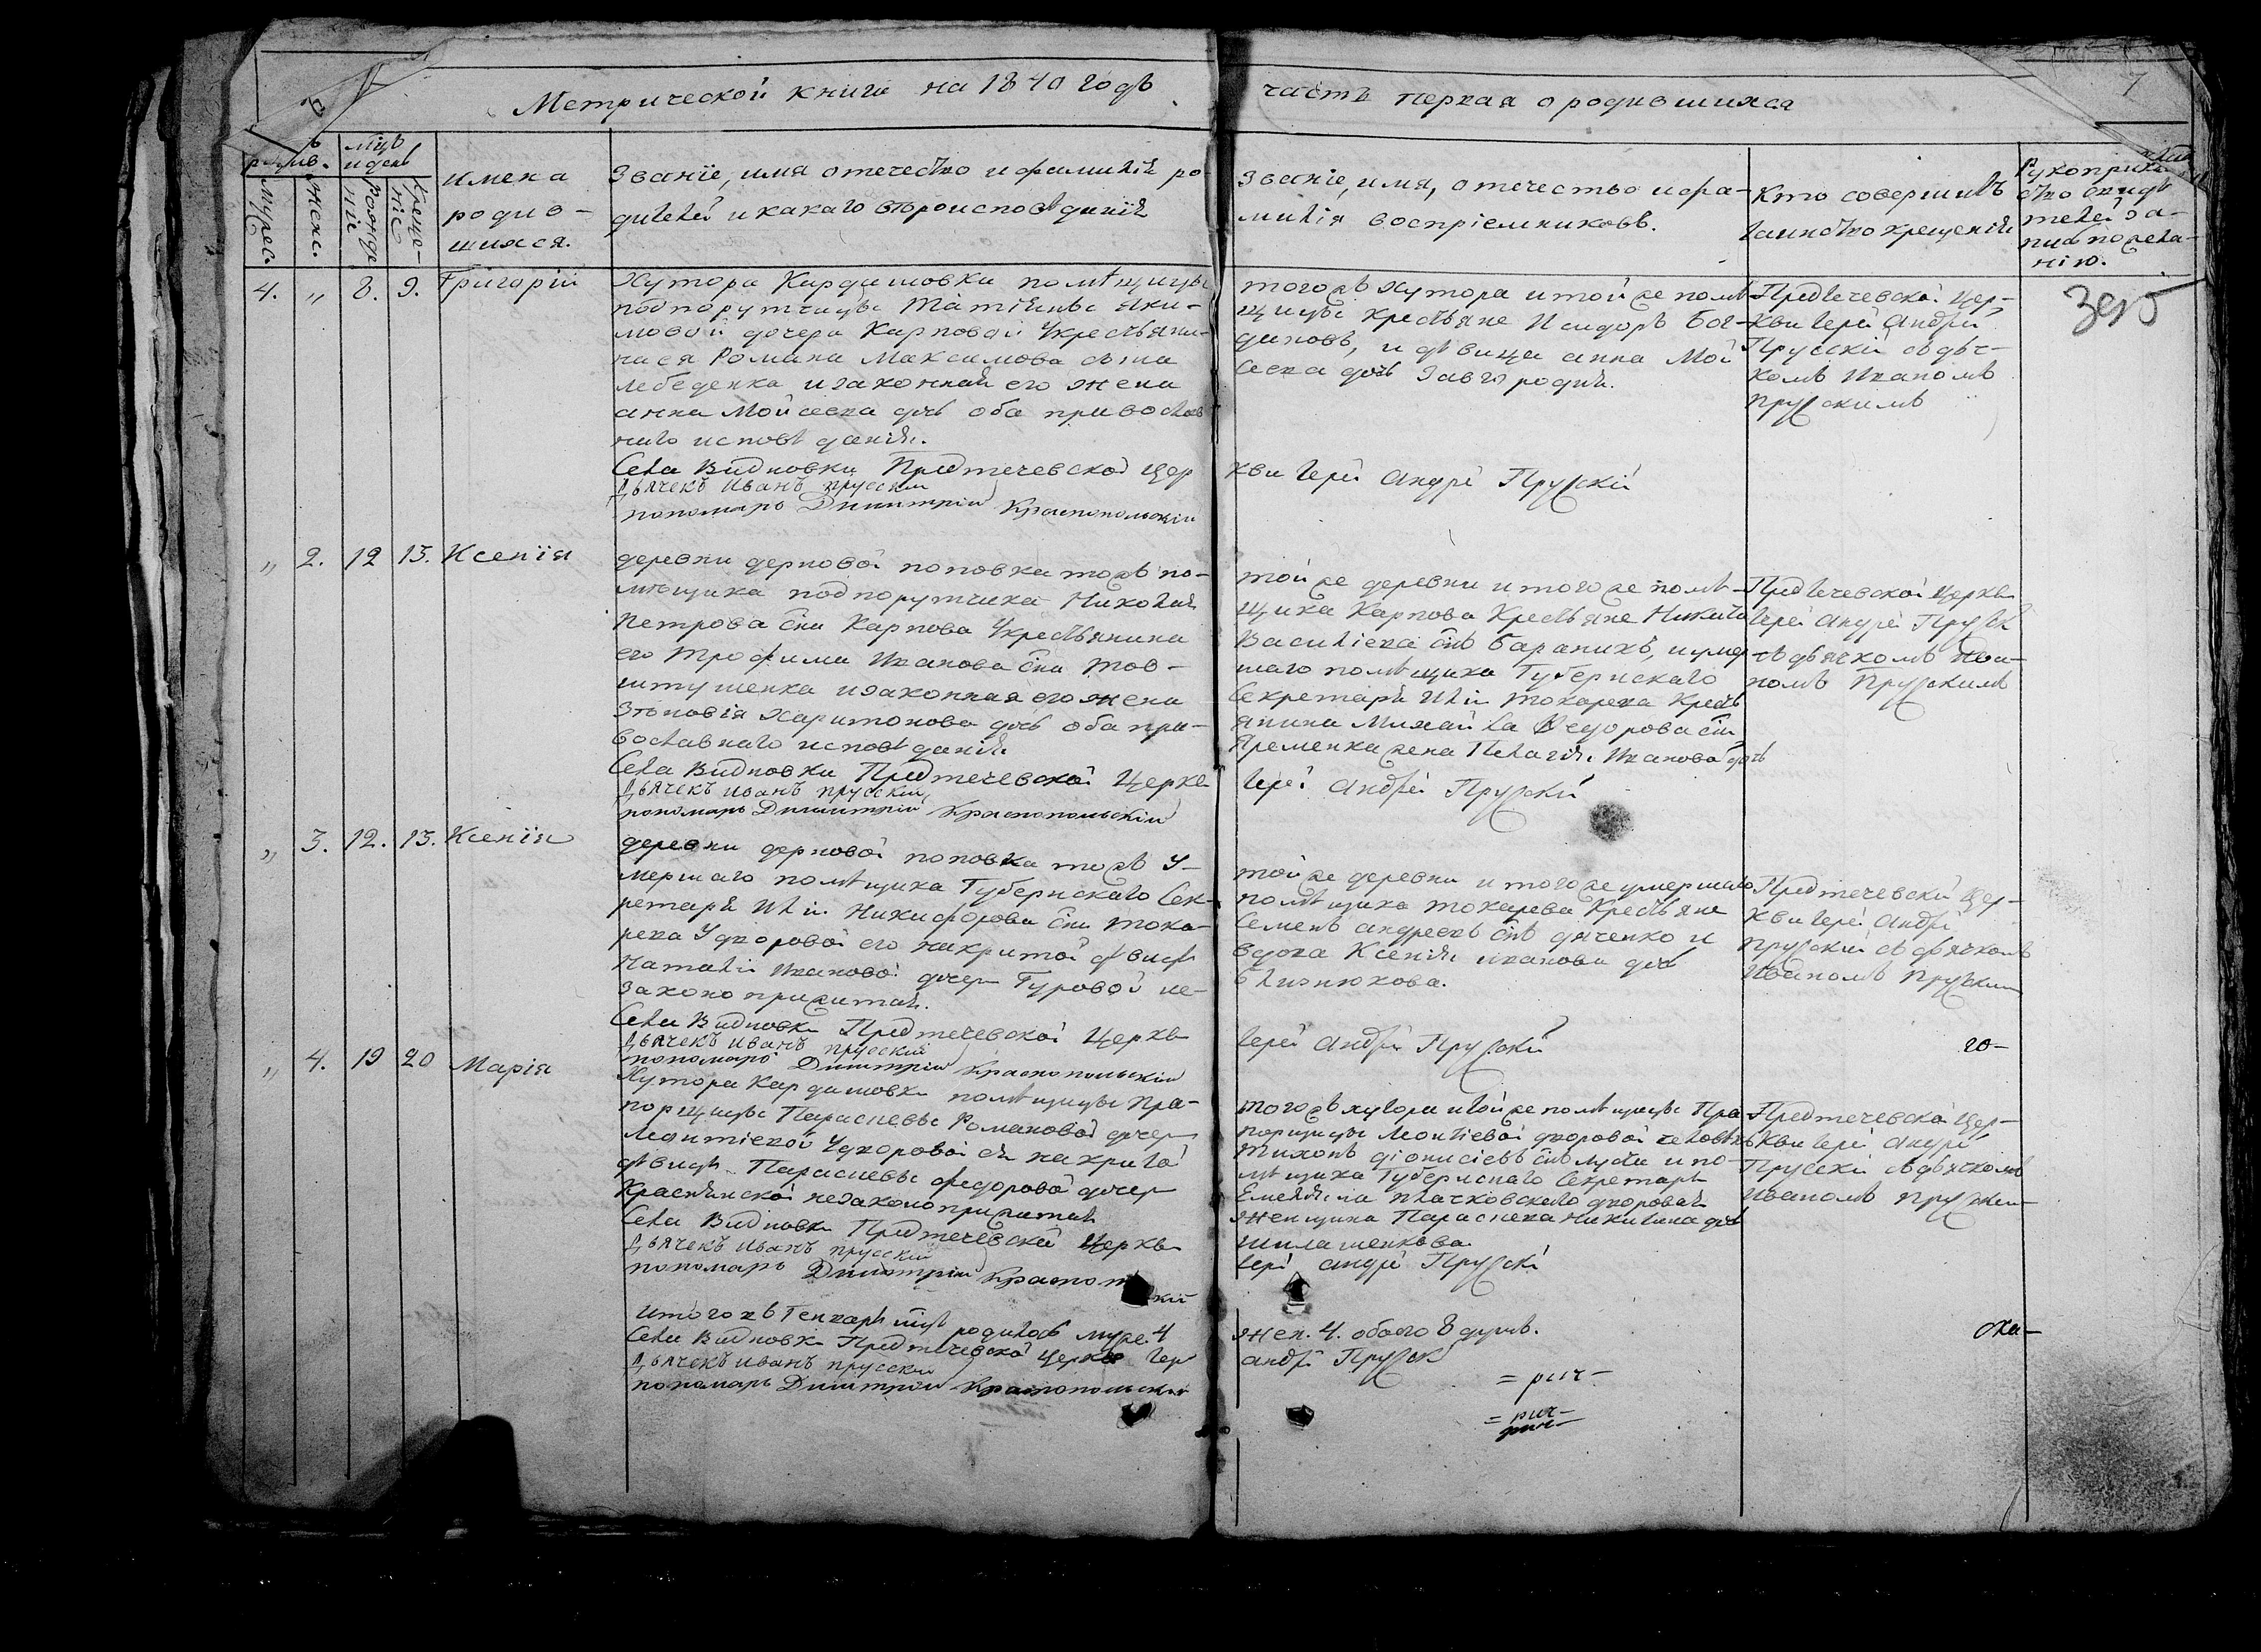 Метрической книги на 1840 годъ
часть первая о родившихся
7
мцъ
и день
Мужес.
Женс.
Рожде
нія
Креще-
ніе
имена
родив-
шихся.
Званїе, имя отечество и фамилія ро-
дителей и какаго вѣроисповѣданія
Званіе, имя, отечество и фа-
милія воспріемниковъ.
Кто совершилъ
таинство крещенія
Рукоприкл
ство свидѣ
телей за-
писи по жела-
нію.
4. „ 8. 9. Григорій
Хутора Кардашовки помѣщицы
подпорутчицы Татіяны Яки-
мовой дочери Карповой Укрестьяни-
на ея Романа Максимова сына
Лебеденка и законная его жена
анна Мойсеева дочь оба православ
наго исповѣданія.
Села Видновки Предтечевской Цер
Дьячекъ Иванъ Прусскій
пономарь Димитрій Краснопольскій
тогожъ хутора и той же помѣ-
щицы крестьяне Исидоръ Бог-
дановъ, и дѣвица анна Мой
сеева дочь
кви Іерей Андрей Прусскій
Предтечевской Цер-
кви Іерей Андрей
Прусскій съ дьяч-
комъ Иваномъ
Прусскимъ
„ 2. 12 13. Ксенїя
деревни дерновой поповка тожъ по-
мѣщика подпорутчика Николая
Петрова сна Карпова Укрестьянина
его Трофима Иванова сна Тов-
штушенка и законная его жена
Зѣновія Харитонова дочь оба пра-
вославнаго исповѣданія
Села Видновки Предтечевской Церкв
Дьячекъ Иванъ Прусскій
пономарь Димитрій Краснопольскій
той же деревни и того же помѣ-
щика Карпова Крестьяне Никита
Василіевъ снъ Бараникъ, и умер
шаго помѣщика Губернскаго
Секретаря Иліи Токарева Крест
янина Михайла Федорова сна
Яременка жена Пелагія Иванова дочь
Іерей Андрей Прусскій
Предтечевской Церкви
Іерей Андрей Прусскій
съ дьячкомъ Ива-
номъ Прусскимъ
„ 3. 12. 13. Ксенїя
деревни дерновой поповка тожъ У-
мершаго помѣщика Губернскаго Сек-
ретаря Иліи Никифорова сна Тока-
рева Удворовой его накритой дѣвицы
Наталіи Ивановой дочер Гуровой не-
законоприжитая.
Села Видновки Предтечевской Церкв
Дьячекъ Иванъ Прусскій
пономарь Димитрій Краснопольскій
той же деревни и того же умершаго
помѣщика Токарева Крестьяне
Семенъ Андреевъ снъ дяченко и
вдова Ксенія иванова дочь
Близнюкова.
Іерей Андрей Прусскій
Предтечевской Цер-
кви Іерей Андрей
Прусскій съ дьячкомъ
Иваномъ Прусским
го-
„ 4. 19 20 Марія
Хутора Кардашовки помѣщицы Пра-
порщицы Парасковьи Романовой дочер
Леонтіевой Удворовой ея накритой
дѣвицы Парасковьи федоровой дочер
незаконоприжитая
Села Видновки Предтечевской Церкв
Дьячекъ Иванъ Прусскій
пономарь Димитрій
тогожъ хутора и той же помѣщицы Пра
порщицы Леонтіевой дворовой человѣкъ
Тихонъ діонисіевъ снъ и по-
мѣщика Губернскаго Секретаря
Емеліана дворовая
женщина Параскева Никитина дочь
Іерей Андрей Прусскій
Предтечевской Цер-
кви Іерей Андрей
Прусскій съ дьячкомъ
Иваномъ Прусским
Итого въ Генварѣ мцѣ родилось муже. 4
жен. 4. обоего 8 душъ.
Села Видновки Предтечевской Церкви Іерей
Андрей Прусскій
Дьячекъ Иванъ Прусскій
пономарь Димитрій Краснопольскій